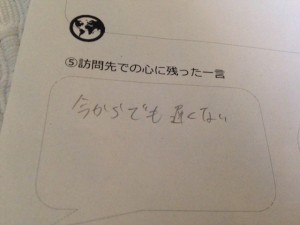 ⑤訪問先での心に残った一言
今からでも遅くない